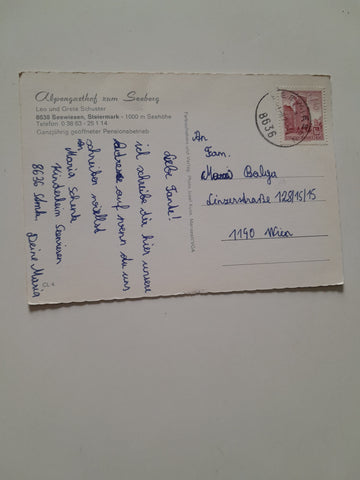 Alpengasthof zum Seeberg
Leo und Grete Schuster
8636 Seewiesen, Steiermark - 1000 m Seehöhe
Telefon 0 38 63 - 25 1 14
Ganzjährig geöffneter Pensionsbetrieb
Liebe Tante!
ich schreibe dir hier unsere
Adresse auf wenn du uns
schreiben willst
an
Maria Schenk
Kinderheim Seewiesen
8636
Deine Maria
CL 4
8636
An
Fam.
Maria Balga
Linzerstraße 128/15/15
1140 Wien